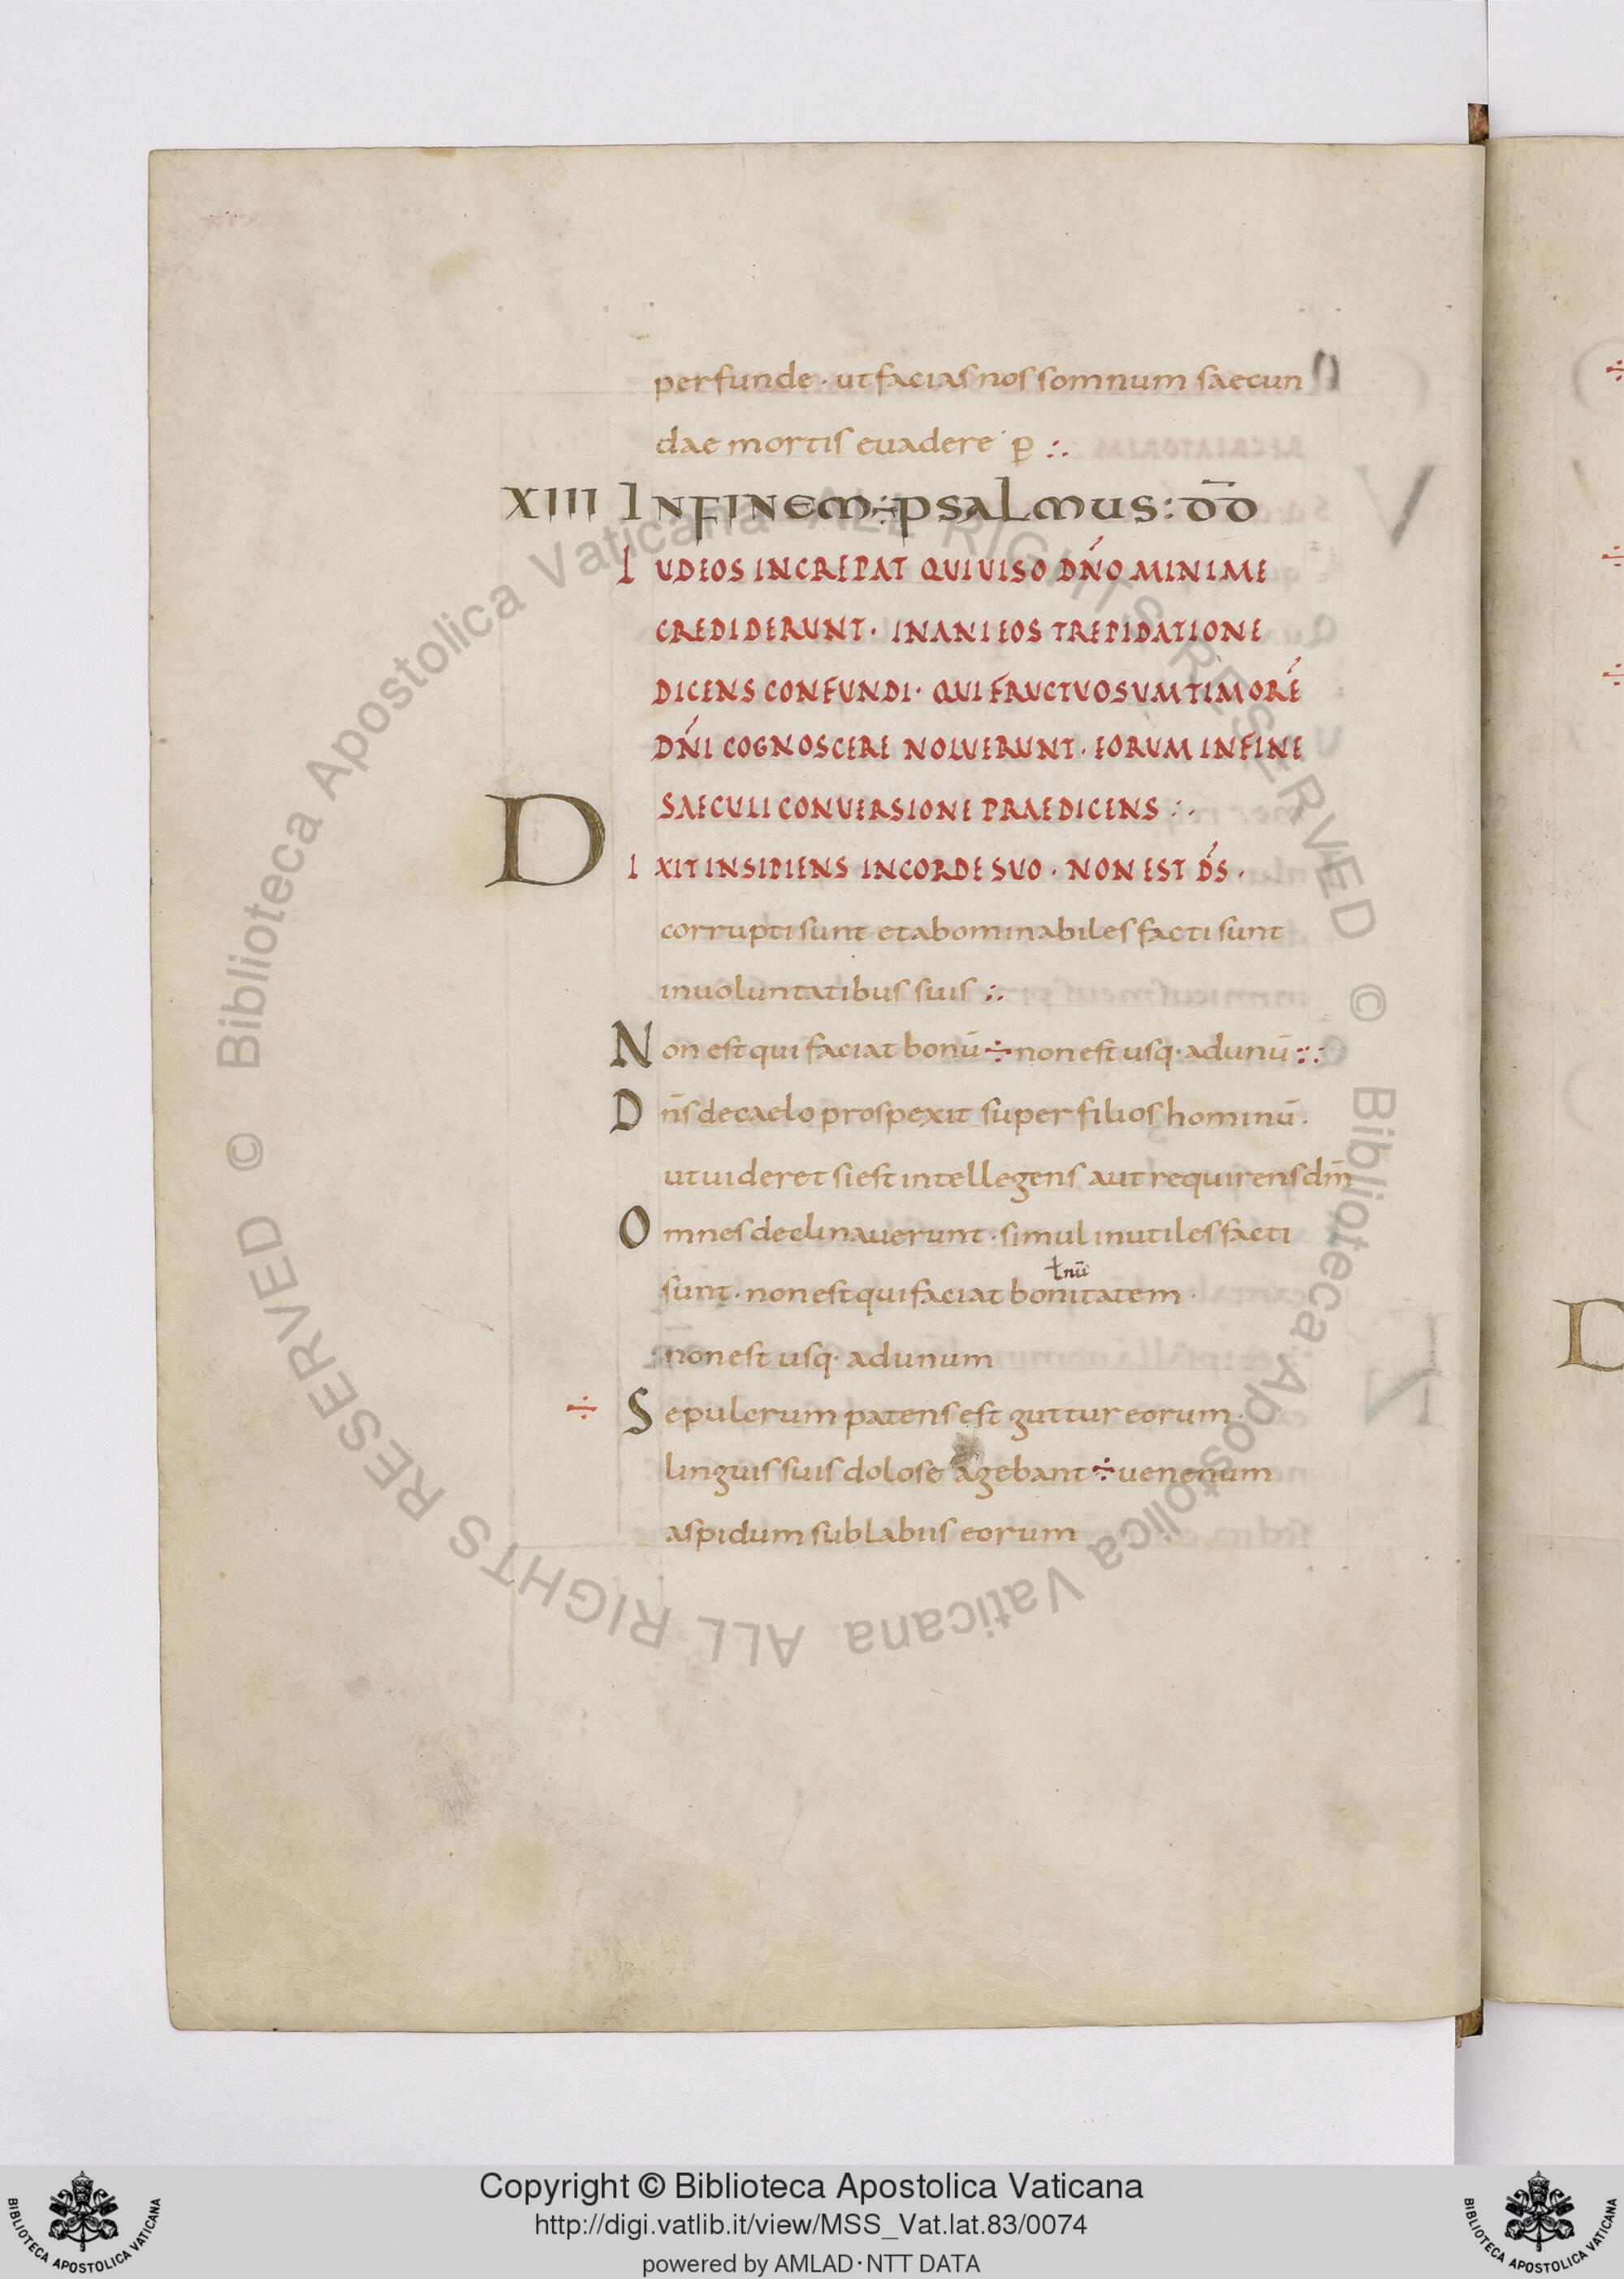 perfunde · ut facias nos somnum saecun
dae mortis euadere · p̱ :.
XIII INFINEM ÷ PSALMUS : D̅D
IUDEOS INCREPAT QUI UISO DN̅O MINIME
CREDIDERUNT · INANI EOS TREPIDATIONE
DICENS CONFUNDI · QUI FRUCTVOSUM TIMORE̅
DN̅I COGNOSCERE NOLVERUNT · EORUM IN FINE
SAECULI CONVERSIONE PRAEDICENS :.
DIXIT INSIPIENS IN CORDE SUO · NON EST D̅S ·
corrupti sunt et abominabiles facti sunt
in uoluntatibus suis :.
Non est qui faciat bonū ÷ non est usq· ad unū ::
Dn̅s de caelo prospexit super filios hominū ·
ut uideret si est intellegens aut requirens dm̅
Omnes declinauerunt · simul inutiles facti
ł nū
sunt · non est qui faciat bonitatem ·
non est usq· ad unum
÷ Sepulcrum patens est guttur eorum ·
linguis suis dolose agebant ÷ uenenum
aspidum sub labiis eorum
D
© Biblioteca Apostolica Vaticana ALL RIGHTS RESERVED © Biblioteca Apostolica Vaticana ALL RIGHTS RESERVED
Copyright © Biblioteca Apostolica Vaticana
http://digi.vatlib.it/view/MSS_Vat.lat.83/0074
powered by AMLAD · NTT DATA
BIBLIOTECA APOSTOLICA VATICANA
BIBLIOTECA APOSTOLICA VATICANA